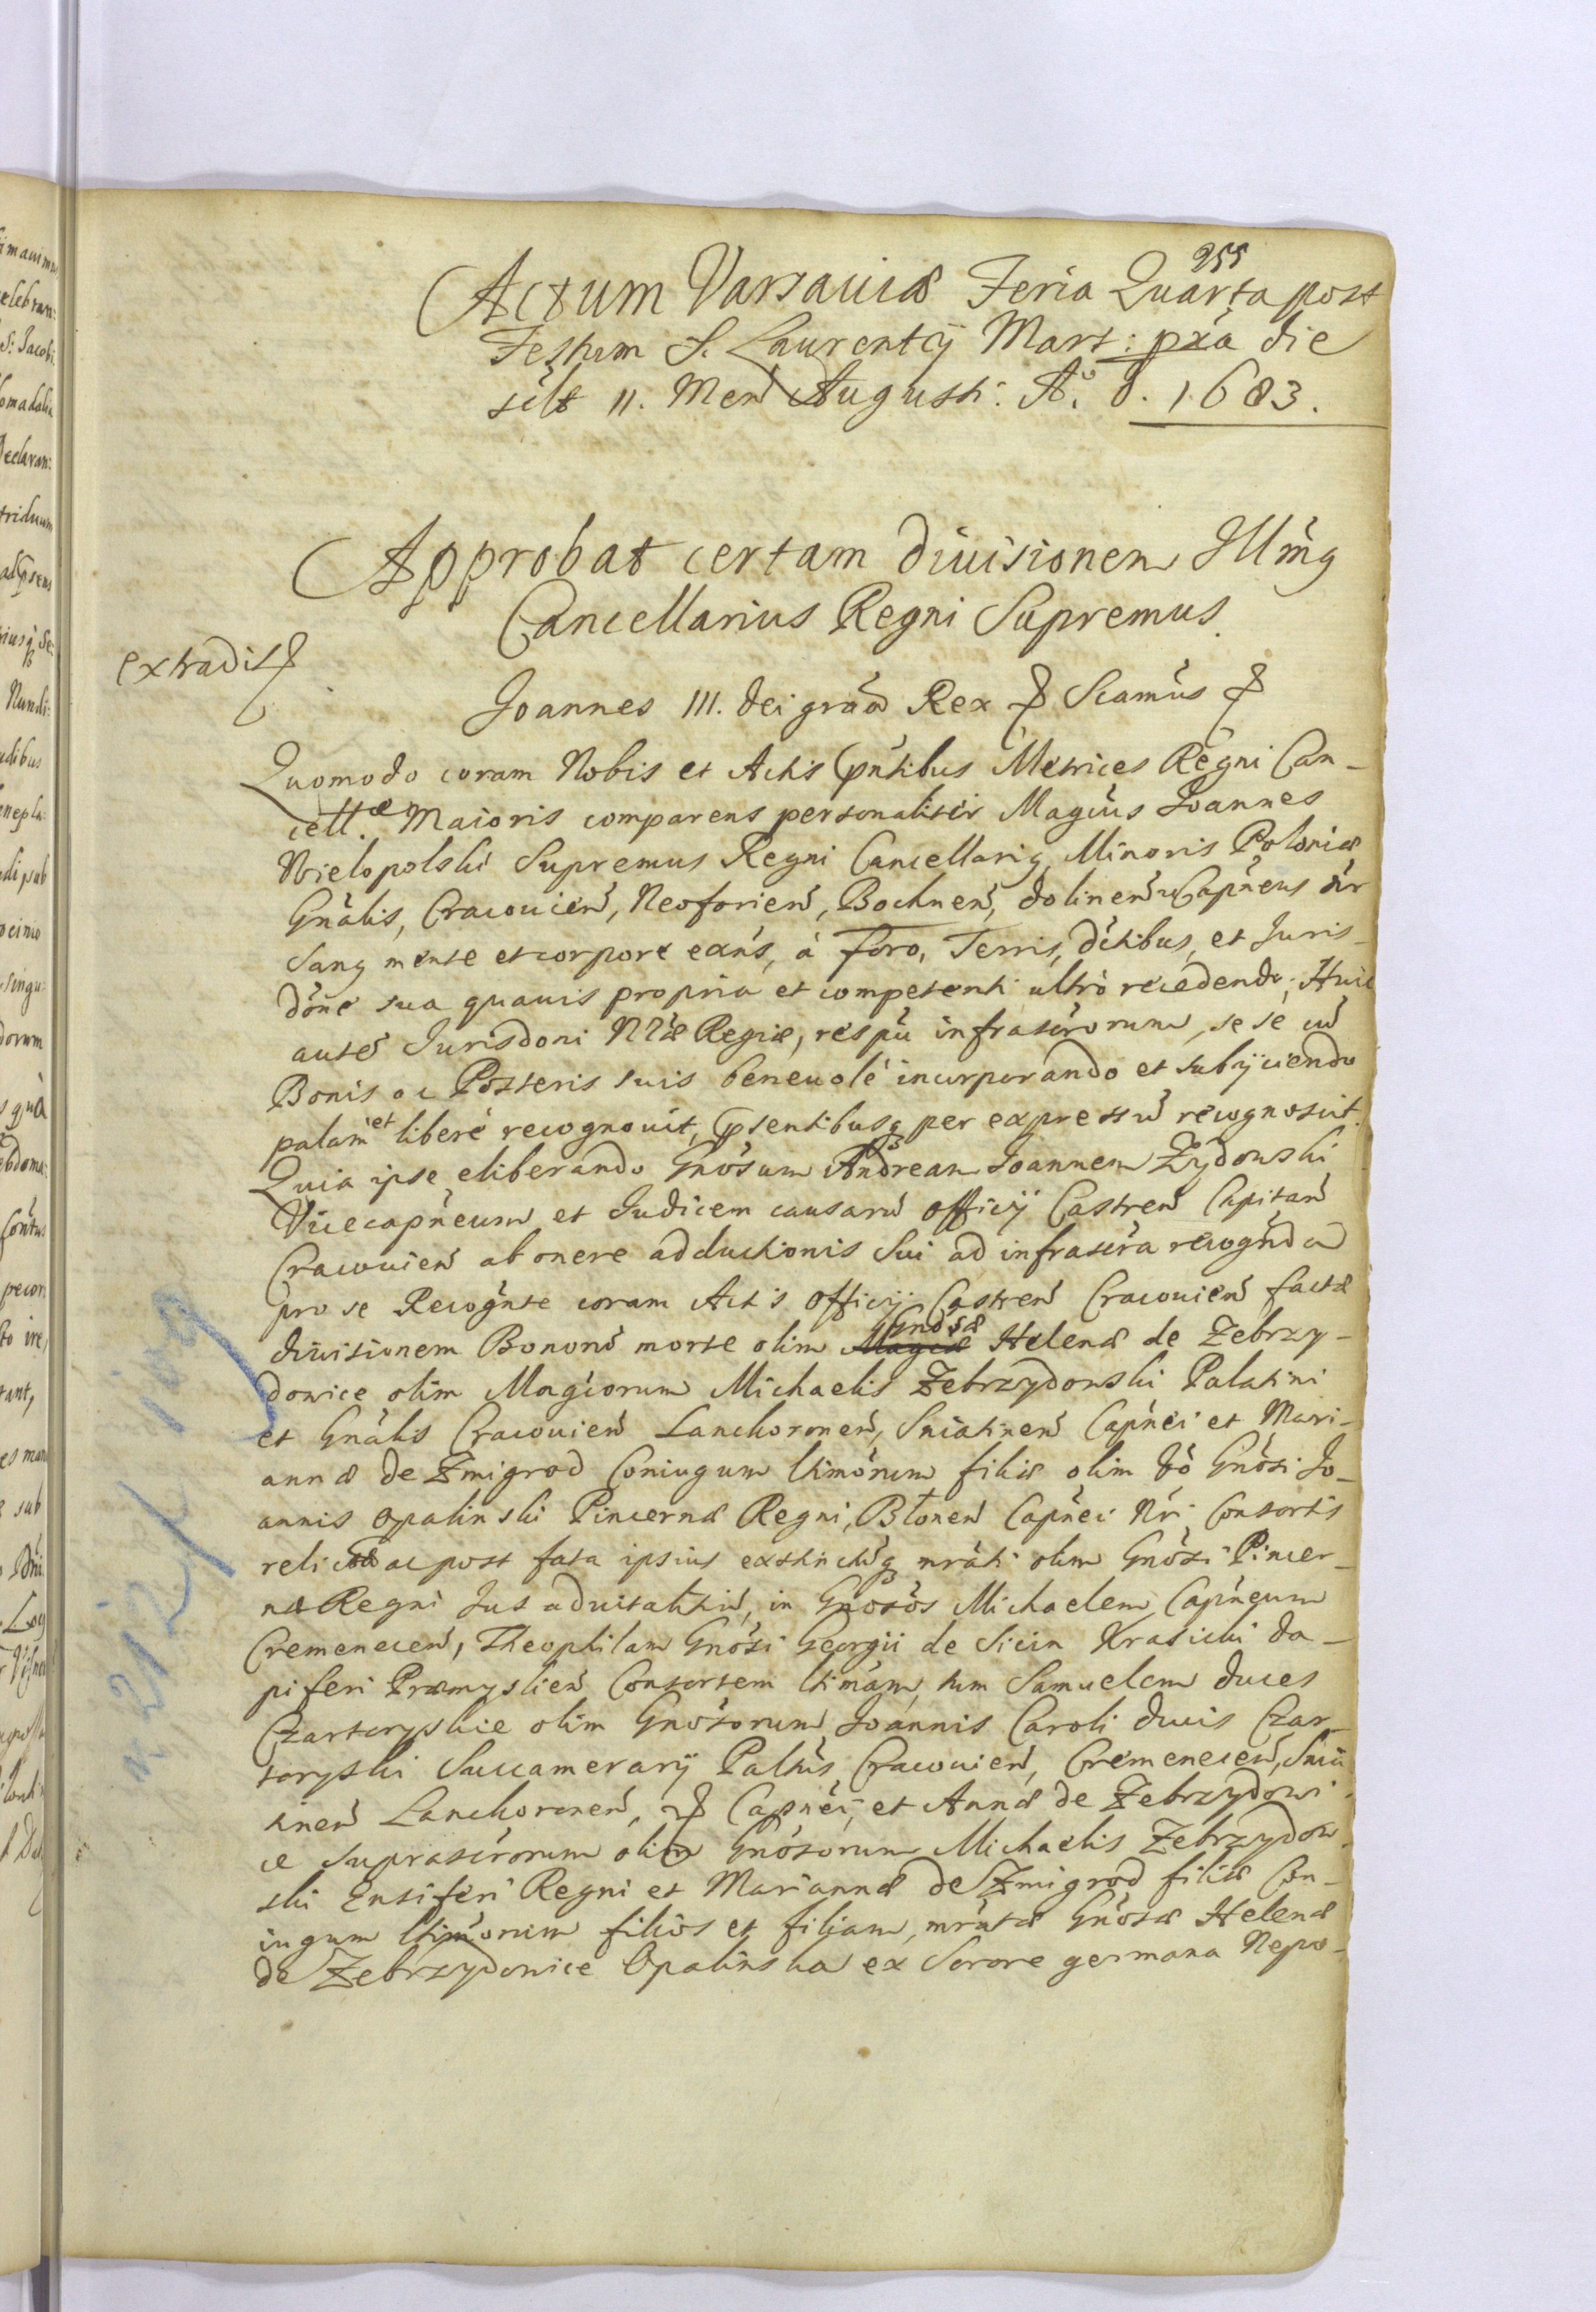 255
Actum Varsauiæ Feria Quarta post
Festum S. Laurentij Mart: pxa die
silt 11. Men Augusti: A.o D. 1683.
Approbat certam diuisionem Illmg
Cancellarius Regni Supremus.
extradit
Joannes III. Dei graa Rex Scamus
Quomodo coram Nobis et Actis pntibus Metrices Regni Can-
cellæ. Maioris comparens personaliter Magcus Joannes
Wielopolski Supremus Regni Cancellarig, Minoris Poloniæ
Gnalis, Cracouien, Neoforien, Bochnen, dolinen Capneus nr
Sang mente et corpore exns, à Foro, Terris, dctibus, et Juris-
done sua quauis propria et competenti ultrò recedendo; Huic
autē Jurisdoni Nræ Regiæ, respu infrascrorum, se se cū
Bonis ac Posteris suis beneuolè incorporando et subijciendo
palam et liberè recognouit, psentibusq per expressū recognoscit.
Quia ipse eliberando Gnosum Andream Joannem Zydowski
Vicecapneum et Judicem causarū officij Castren Capitan
Cracouien ab onere adductionis Sui ad infrascra recognda
pro se Recognte coram Actis officij Castren Cracouien factæ
diuisionem Bonorū morte olim Magcæ Gnosæ Helenæ de Zebrzy-
dowice olim Magcorum Michaelis Zebrzydowski Palatini
et Gnalis Cracouien Lanckoronen, Sniatinen Capnei et Mari-
annæ de Zmigrod Coniugum ltimorum filiæ olim vò Gnosi Jo-
annis Opalinski Pincernæ Regni, Błonen Capnei Nri Consortis
relictæ ac post fata ipsius exstinctūq mrati olim Gnosi Pincer-
næ Regni Jus aduitalitiū, in Gnosos Michaelem Capneum
Cremenecen, Theophilam Gnosi Georgii de Siecin Krasicki da-
piferi Præmyslien Consortem ltimam, tum Samuelem duces
Czartoryskie olim Gnosorum Joannis Caroli ducis Czar-
toryski Succamerarij Paltus Cracouien, Cremenecen, Snia
tinen Lanckoronen, Capnei, et Annæ de Zebrzydowi-
ce suprascrorum olim Gnosorum Michaelis Zebrzydow
ski Ensiferi Regni et Mariannæ de Zmigrod filiæ Con-
iugum ltimorum filios et filiam, mratæ Gnosæ Helenæ
de Zebrzydowice Opalinska ex Sorore germana Nepo-